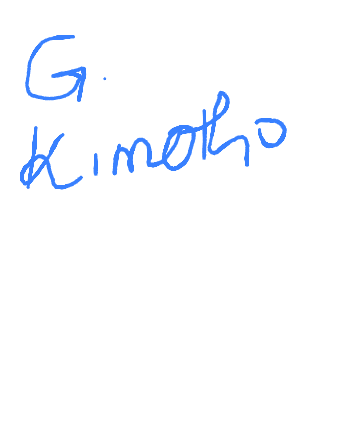 G.
Kimotho